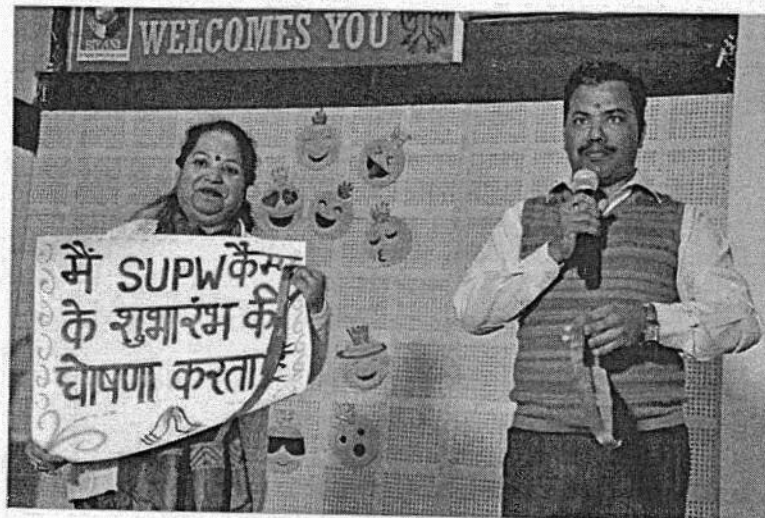 WELCOMES YOU
मैं SUPW
के शुभारंभ की
घोषणा करता